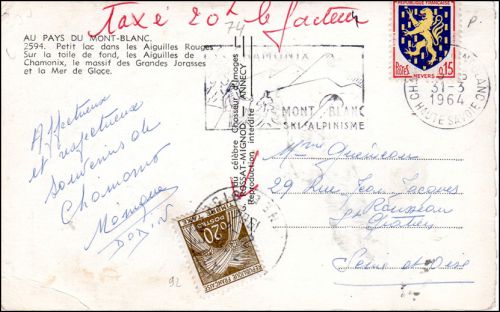 Taxé 20 c le facteur
AU PAYS DU MONT-BLANC.
2594. Petit lac dans les Aiguilles Rouges
Sur la toile de fond, les Aiguilles de
Chamonix, le massif des Grandes Jorasses
et la Mer de Glace.
Affectueux
et respectueux
souvenirs de
Chamonix
Monique
DODIN
du célèbre Chasseur d'Images
ROSSAT-MIGNOD, ANNECY
Reproduction interdite
MONT-BLANC
SKI-ALPINISME
RÉPUBLIQUE FRANÇAISE
Postes 0,15
NEVERS
31-3
1964
HAUTE SAVOIE
Mme
29 Rue Jean Jacques
Rousseau
Seine et Oise
0,20
POSTES
RÉPUBLIQUE FRANÇAISE
92